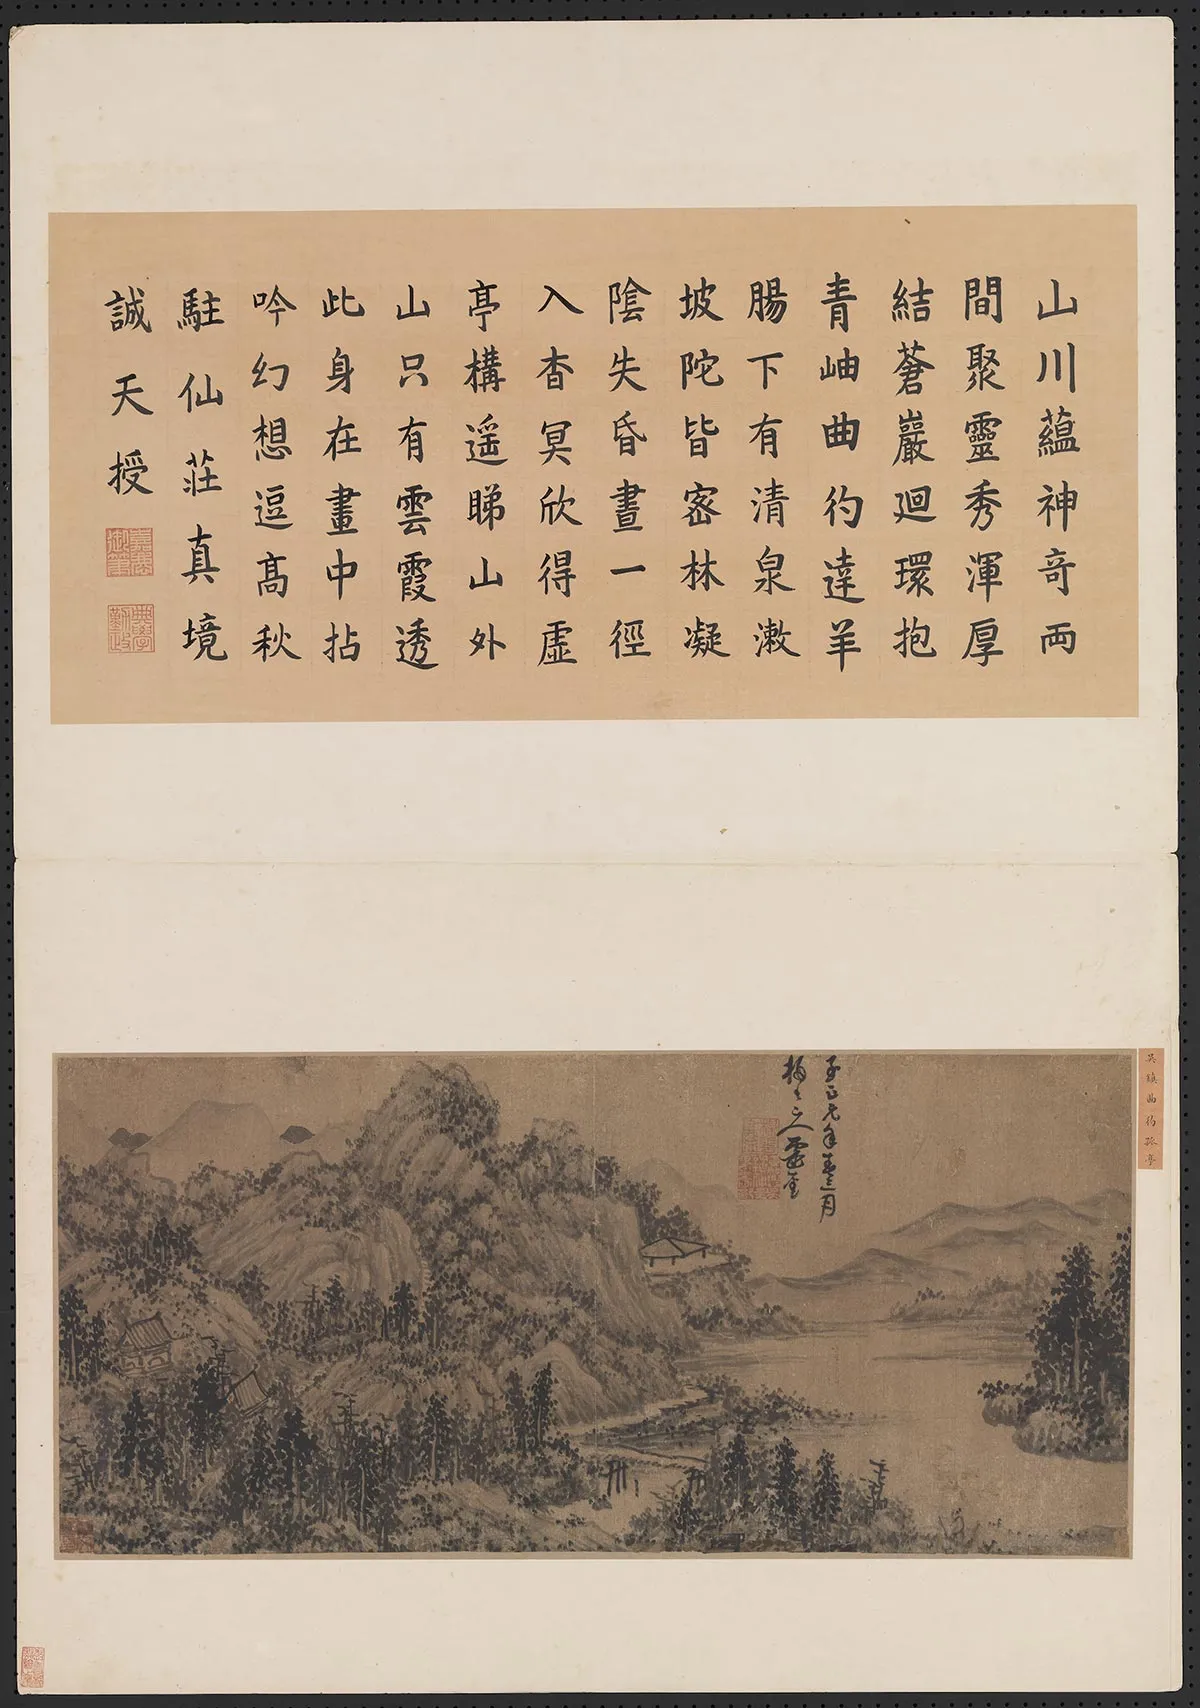 山川蘊神奇両
間聚靈秀渾厚
結蒼巖迴環抱
青岫曲彴達羊
腸下有清泉漱
坡陀皆密林凝
陰失昏晝一徑
入杳冥欣得虛
亭構遥睇山外
山只有雲霞透
此身在畫中拈
吟幻想逗高秋
駐仙莊真境
誠天授
嘉慶
御筆
典學
勤政
吳鎮曲彴孤亭
至正元年春三月
梅道人戲墨